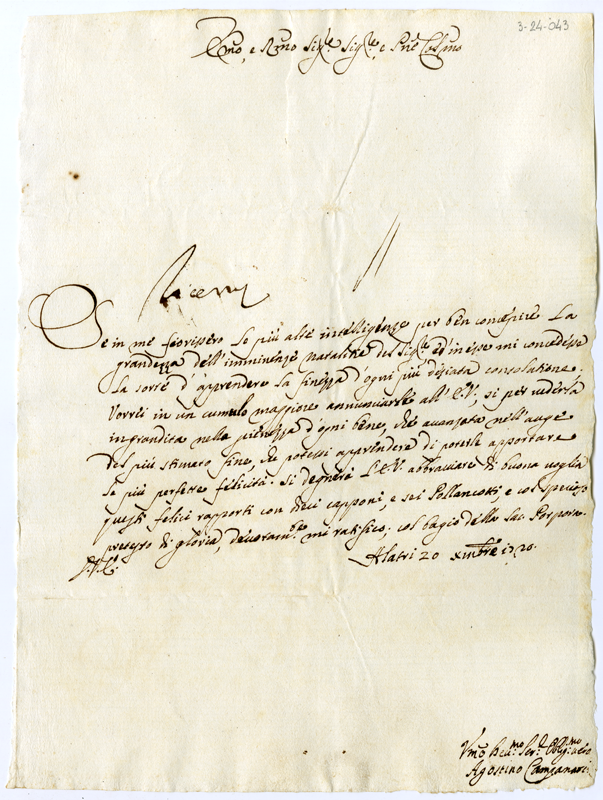 3-24-043
Em̃o, e Rm̃o Sig.re Sig.re, e Pne Col.mo
Riceva
Se in me fiorissero le più alte intelligenze per ben concepire la
grandezza dell'imminente natalitie del Sig.re ed in esse mi concedesse
la sorte d'apprendere la finezza d'ogni più desiata consolatione.
Vorrei in un cumulo maggiore annunciarle all'E.V., si per vederla
ingrandita nella pienezza d'ogni bene, che avanzata nell'auge
del più stimato fine, che potessi apprendere di poterle apportare
le più perfette felicità. Si degnerà l'E.V. abbracciare di buona voglia
questi felici rapporti con dieci capponi, e sei Pollancotti, e col specioso
pretesto di gloria, devotam.te me ratifico, col bagio della Sac. Porpora.
D.V.E.
Alatri 20 xmbre 1720.
Vm̃o Dev.mo Ser.e Oblig.mo
Agostino Campanari